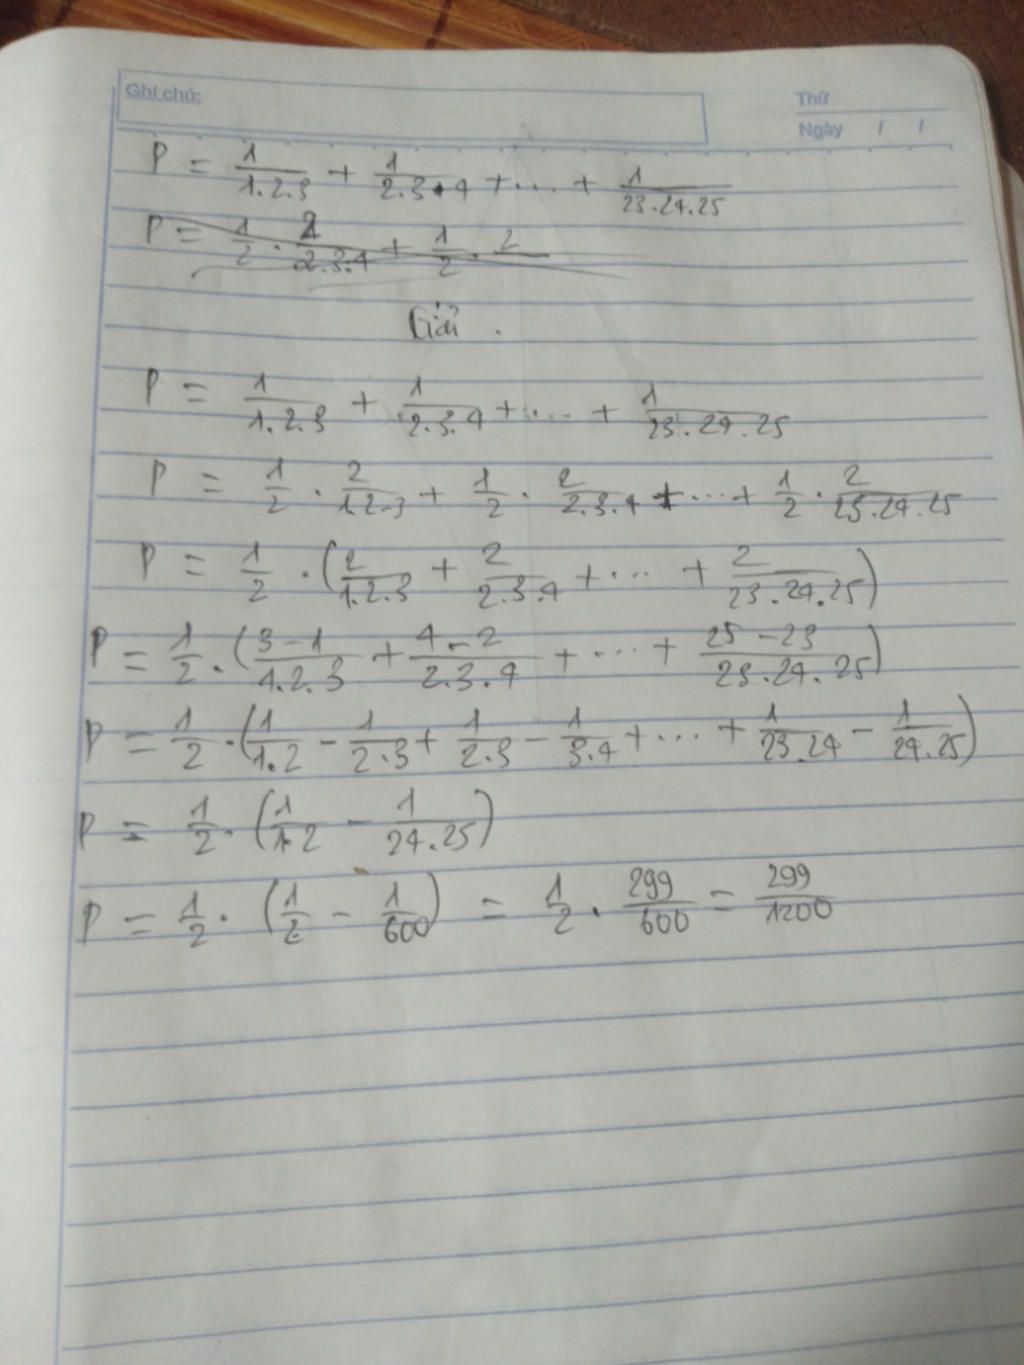 Ghi chú:
Thứ
Ngày / /
P = 1/1.2.3 + 1/2.3.4 + ... + 1/23.24.25
P = 1/2 . 2/2.3.4 + 1/2 . 2
Giải .
P = 1/1.2.3 + 1/2.3.4 + ... + 1/23.24.25
P = 1/2 . 2/1.2.3 + 1/2 . 2/2.3.4 + ... + 1/2 . 2/23.24.25
P = 1/2 . (2/1.2.3 + 2/2.3.4 + ... + 2/23.24.25)
P = 1/2 . (3-1/1.2.3 + 4-2/2.3.4 + ... + 25-23/23.24.25)
P = 1/2 . (1/1.2 - 1/2.3 + 1/2.3 - 1/3.4 + ... + 1/23.24 - 1/24.25)
P = 1/2 . (1/1.2 - 1/24.25)
P = 1/2 . (1/2 - 1/600) = 1/2 . 299/600 = 299/1200